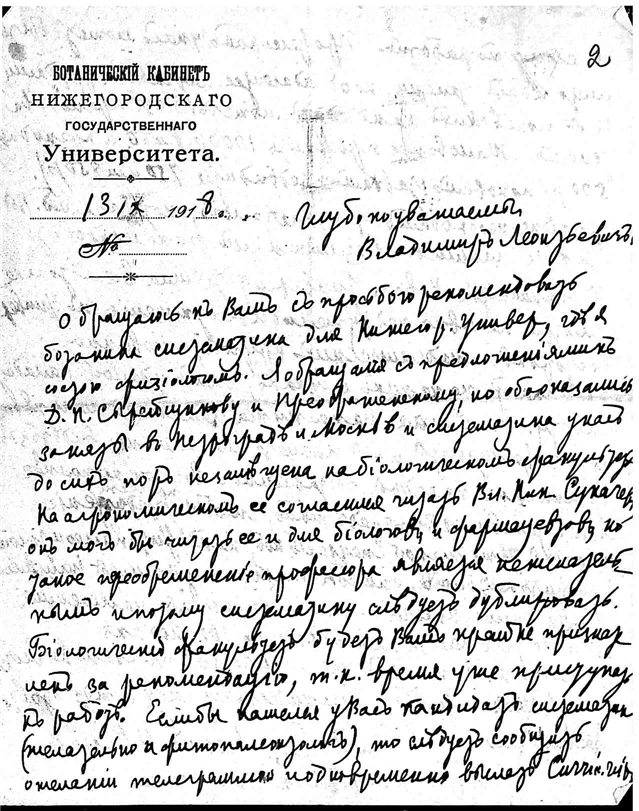 2
БОТАНИЧЕСКІЙ КАБИНЕТЪ
НИЖЕГОРОДСКАГО
ГОСУДАРСТВЕННАГО
Университета.
13 IX 1918 г.
№
Глубокоуважаемый
Владимиръ Леонтьевичъ,
Обращаюсь къ Вамъ съ просьбою рекомендовать
ботаника систематика для Нижегор. Универ., гдѣ я
состою физіологомъ. Я обращался съ предложеніями къ
Д. П. Сырейщикову и Преображенскому, но оба оказались
заняты въ Петроградѣ и Москвѣ и систематика у насъ
до сихъ поръ не замѣщена на біологическомъ факультетѣ
На агрономическомъ ее согласился читать Вл. Ник. Сукачев
онъ могъ бы читать ее и для біологовъ и фармацевтовъ, но
такое переобремененіе профессора является нежелатель
нымъ и потому систематику слѣдуетъ дублировать.
Біологическій факультетъ будетъ Вамъ крайне признат
ленъ за рекомендацію, т.к. время уже приступат
къ работѣ. Если бы нашелся у Васъ кандидатъ систематик
(желательно и фитопалеонтологъ), то слѣдуетъ сообщить
о желаніи телеграммой и одновременно выслать